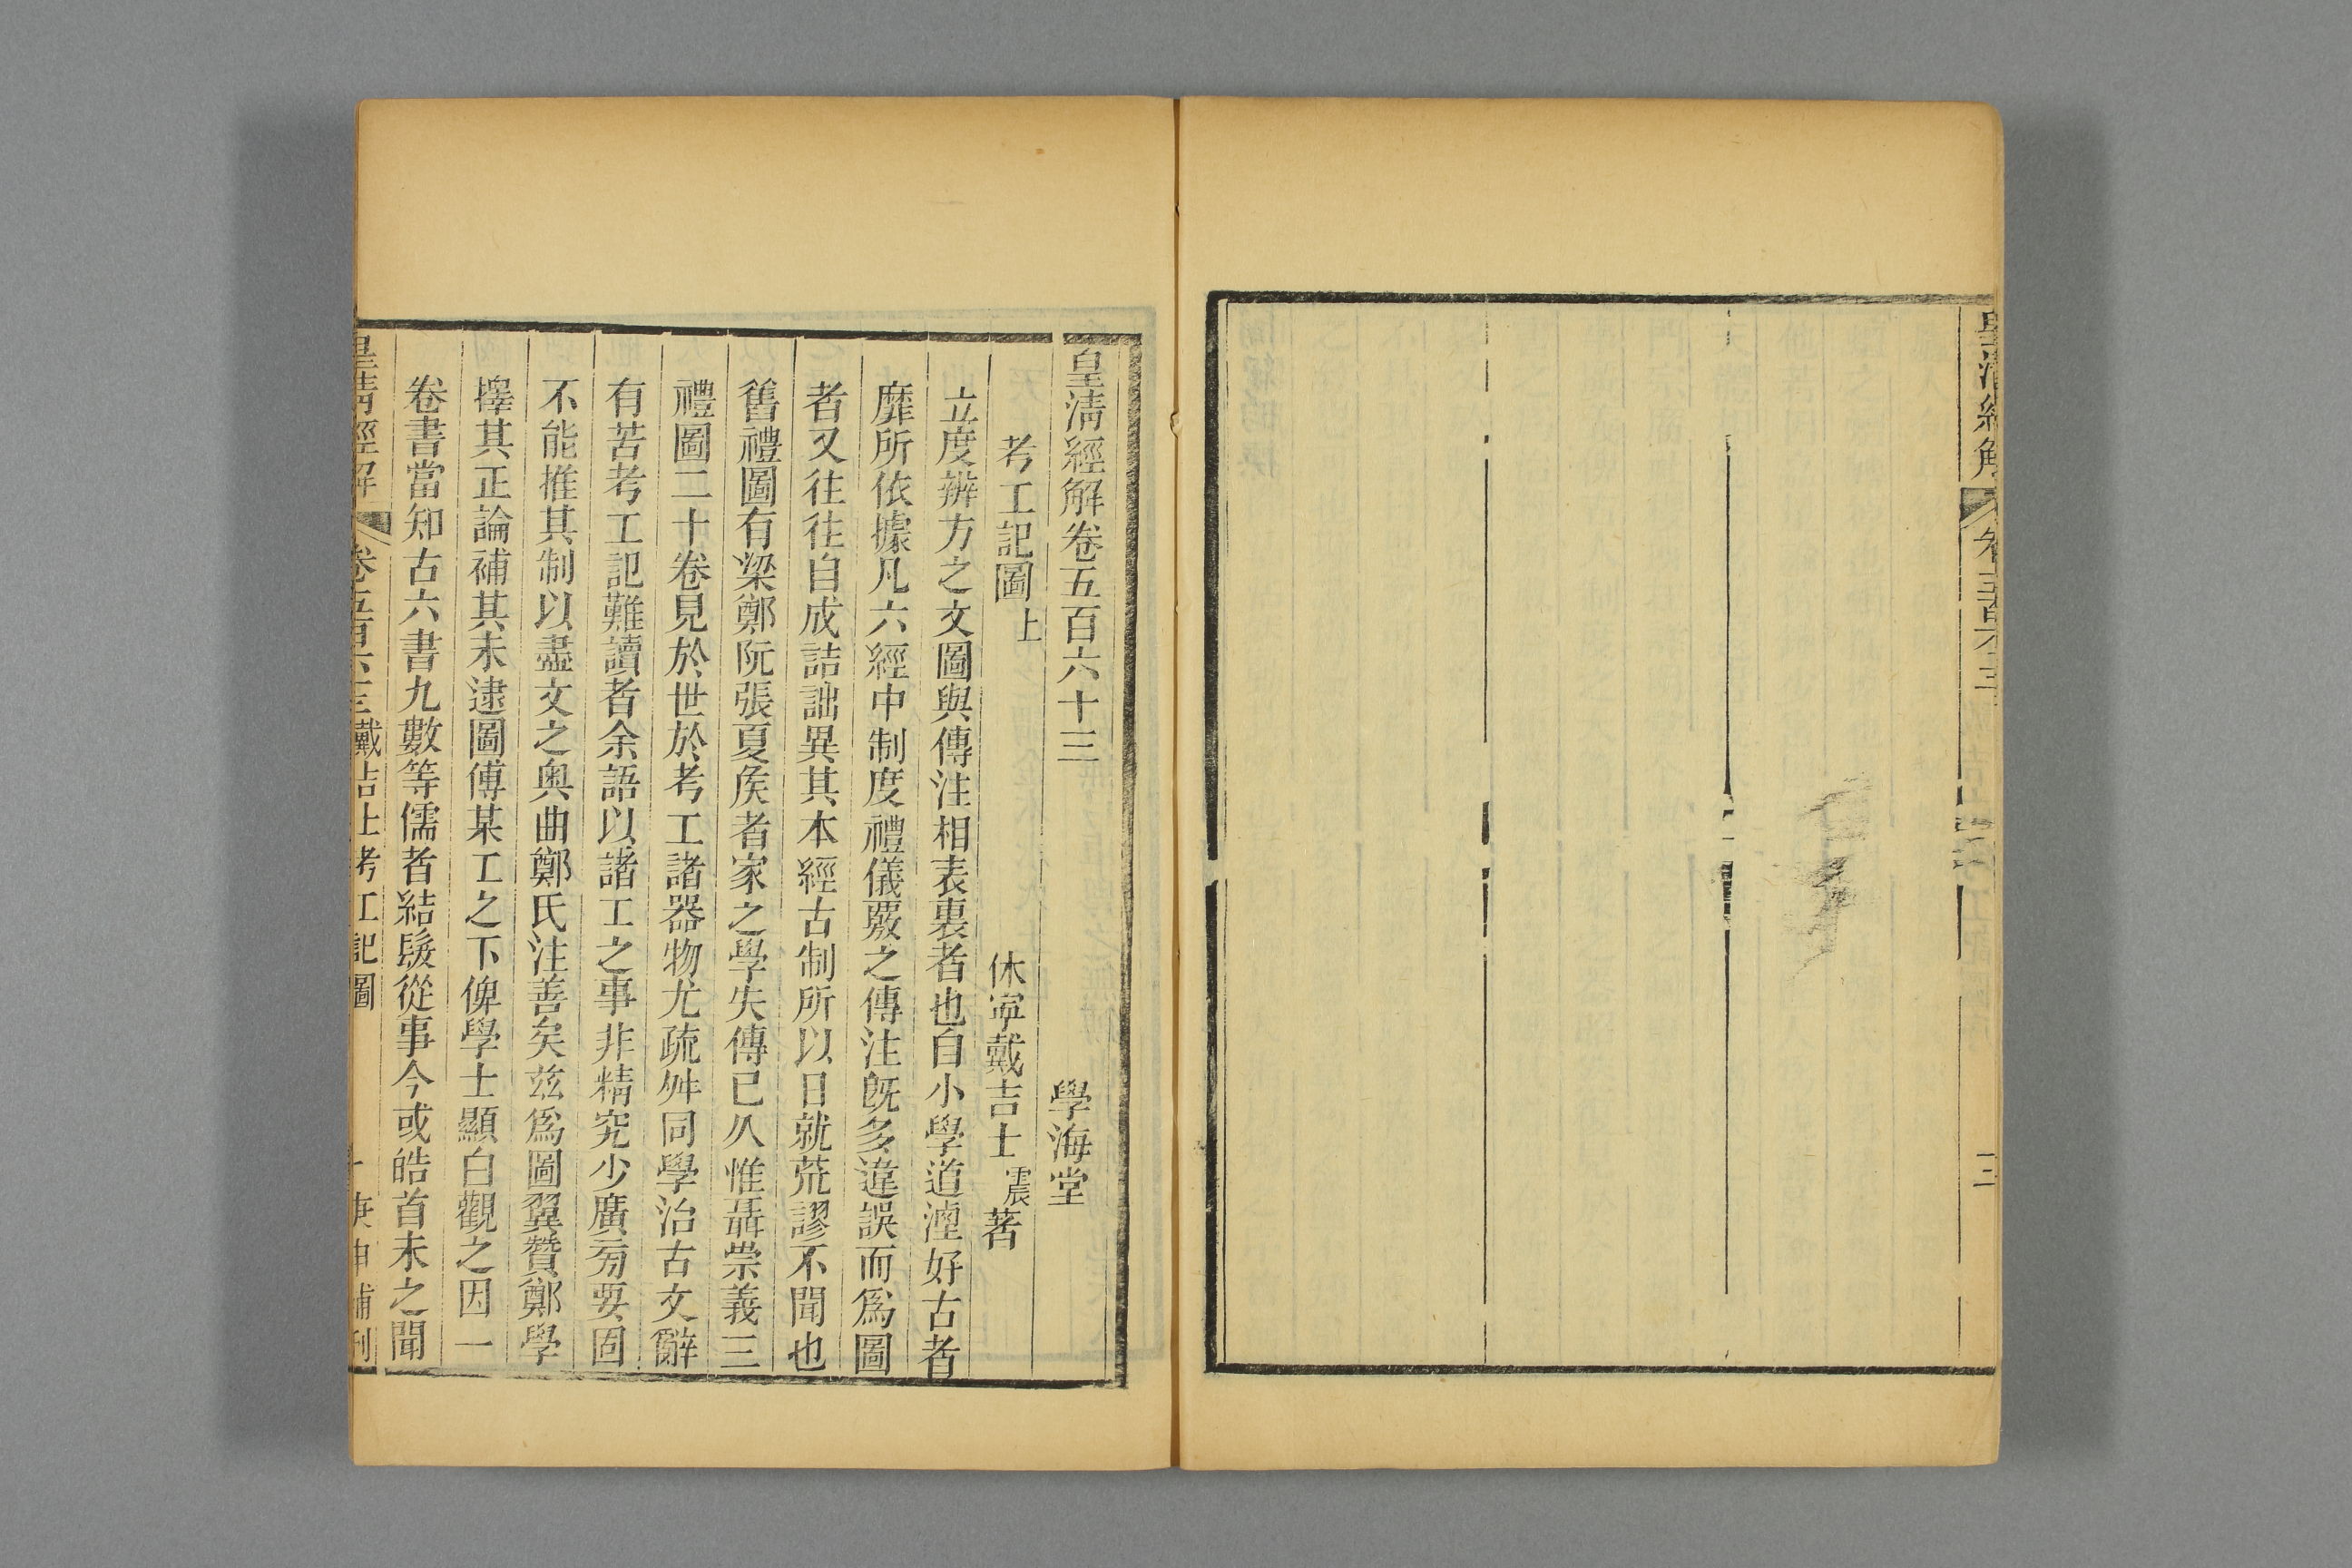 皇清經解
三
皇清經解卷五百六十三
學海堂
考工記圖上
休寧戴吉士震著
立度辨方之文圖與傳注相表裏者也自小學道湮好古者
靡所依據凡六經中制度禮儀覈之傳注旣多違誤而爲圖
者又往往自成詰詘異其本經古制所以日就荒謬不聞也
舊禮圖有梁鄭阮張夏矦者家之學失傳已久惟聶崇義三
禮圖二十卷見於世於考工諸器物尤疏舛同學治古文辭
有苦考工記難讀者余語以諸工之事非精究少廣旁要固
不能推其制以盡文之奧曲鄭氏注善矣茲爲圖翼贊鄭學
擇其正論補其未逮圖傅某工之下俾學士顯白觀之因一
卷書當知古六書九數等儒者結髮從事今或皓首未之聞
皇清經解 卷五百六十三 戴吉士考工記圖 庚申補刊